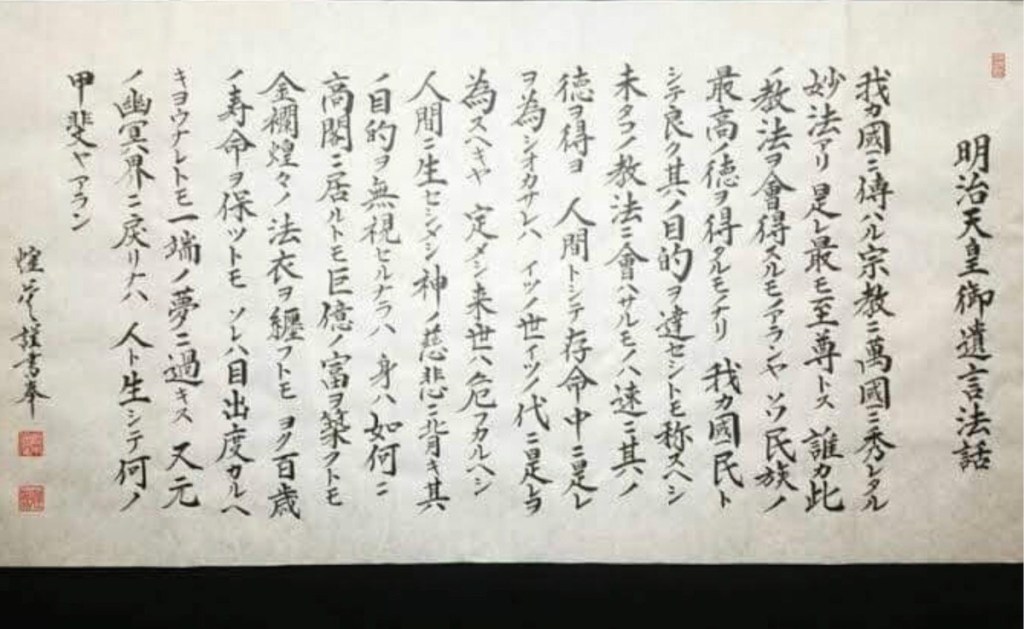 明治天皇御遺言法話
我カ國ニ傳ハル宗教ニ萬國ニ秀レタル
妙法アリ是レ最モ至尊トス 誰カ此
ノ教法ヲ會得スルモノアランヤ 民族ノ
最高ノ徳ヲ得タルモノナリ 我カ國民ト
シテ良ク其ノ目的ヲ達セントモ称スヘシ
未タコノ教法ニ會ハサルモノハ速ニ其ノ
徳ヲ得ヨ 人間トシテ存命中ニ是レ
ヲ為シオカサレハ イツノ世イツノ代ニ是ヲ
為スヘキヤ 定メシ来世ハ危フカルヘシ
人間ニ生セシメシ神ノ慈悲ニ背キ其
ノ目的ヲ無視セルナラハ 身ハ如何ニ
高閣ニ居ルトモ巨億ノ富ヲ築クトモ
金襴煌々ノ法衣ヲ纏フトモ ヨク百歳
ノ寿命ヲ保ツトモ ソレハ目出度カルヘ
キヨウナレトモ一端ノ夢ニ過キス 又元
ノ幽冥界ニ戻リナハ 人ト生シテ何ノ
甲斐ヤアラン
謹書奉